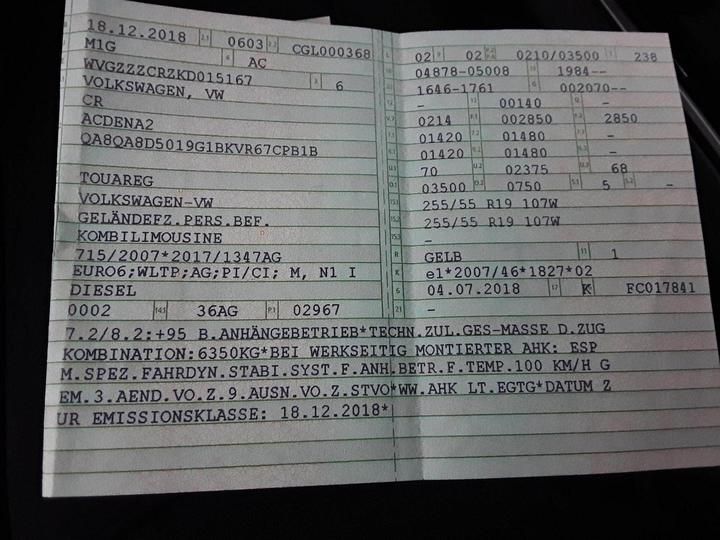 18.12.2018 2.1 0603 2.2 CGL000368
M1G 4 AC
WVGZZZCRZKD015167 3 6
VOLKSWAGEN, VW
CR
ACDENA2
QA8QA8D5019G1BKVR67CPB1B
TOUAREG
VOLKSWAGEN-VW
GELÄNDEFZ.PERS.BEF.
KOMBILIMOUSINE
715/2007*2017/1347AG
EURO6;WLTP;AG;PI/CI; M, N1 I
DIESEL
0002 14.1 36AG P.1 02967
L 02 9 02 P.2 P.4 0210/03500 T 238
18 04878-05008 19 1984--
20 1646-1761 G 002070--
12 - 13 00140 Q -
V.7 0214 F.1 002850 F.2 2850
7.1 01420 7.2 01480 7.3 -
8.1 01420 8.2 01480 8.3 -
U.1 70 U.2 02375 U.3 68
O.1 03500 O.2 0750 S.1 5 S.2 -
15.1 255/55 R19 107W
15.2 255/55 R19 107W
15.3 -
R GELB 11 1
K e1*2007/46*1827*02
6 04.07.2018 17 K 16 FC017841
21 -
7.2/8.2:+95 B.ANHÄNGEBETRIEB*TECHN.ZUL.GES-MASSE D.ZUG
KOMBINATION:6350KG*BEI WERKSEITIG MONTIERTER AHK: ESP
M.SPEZ.FAHRDYN.STABI.SYST.F.ANH.BETR.F.TEMP.100 KM/H G
EM.3.AEND.VO.Z.9.AUSN.VO.Z.STVO*WW.AHK LT.EGTG*DATUM Z
UR EMISSIONSKLASSE: 18.12.2018*